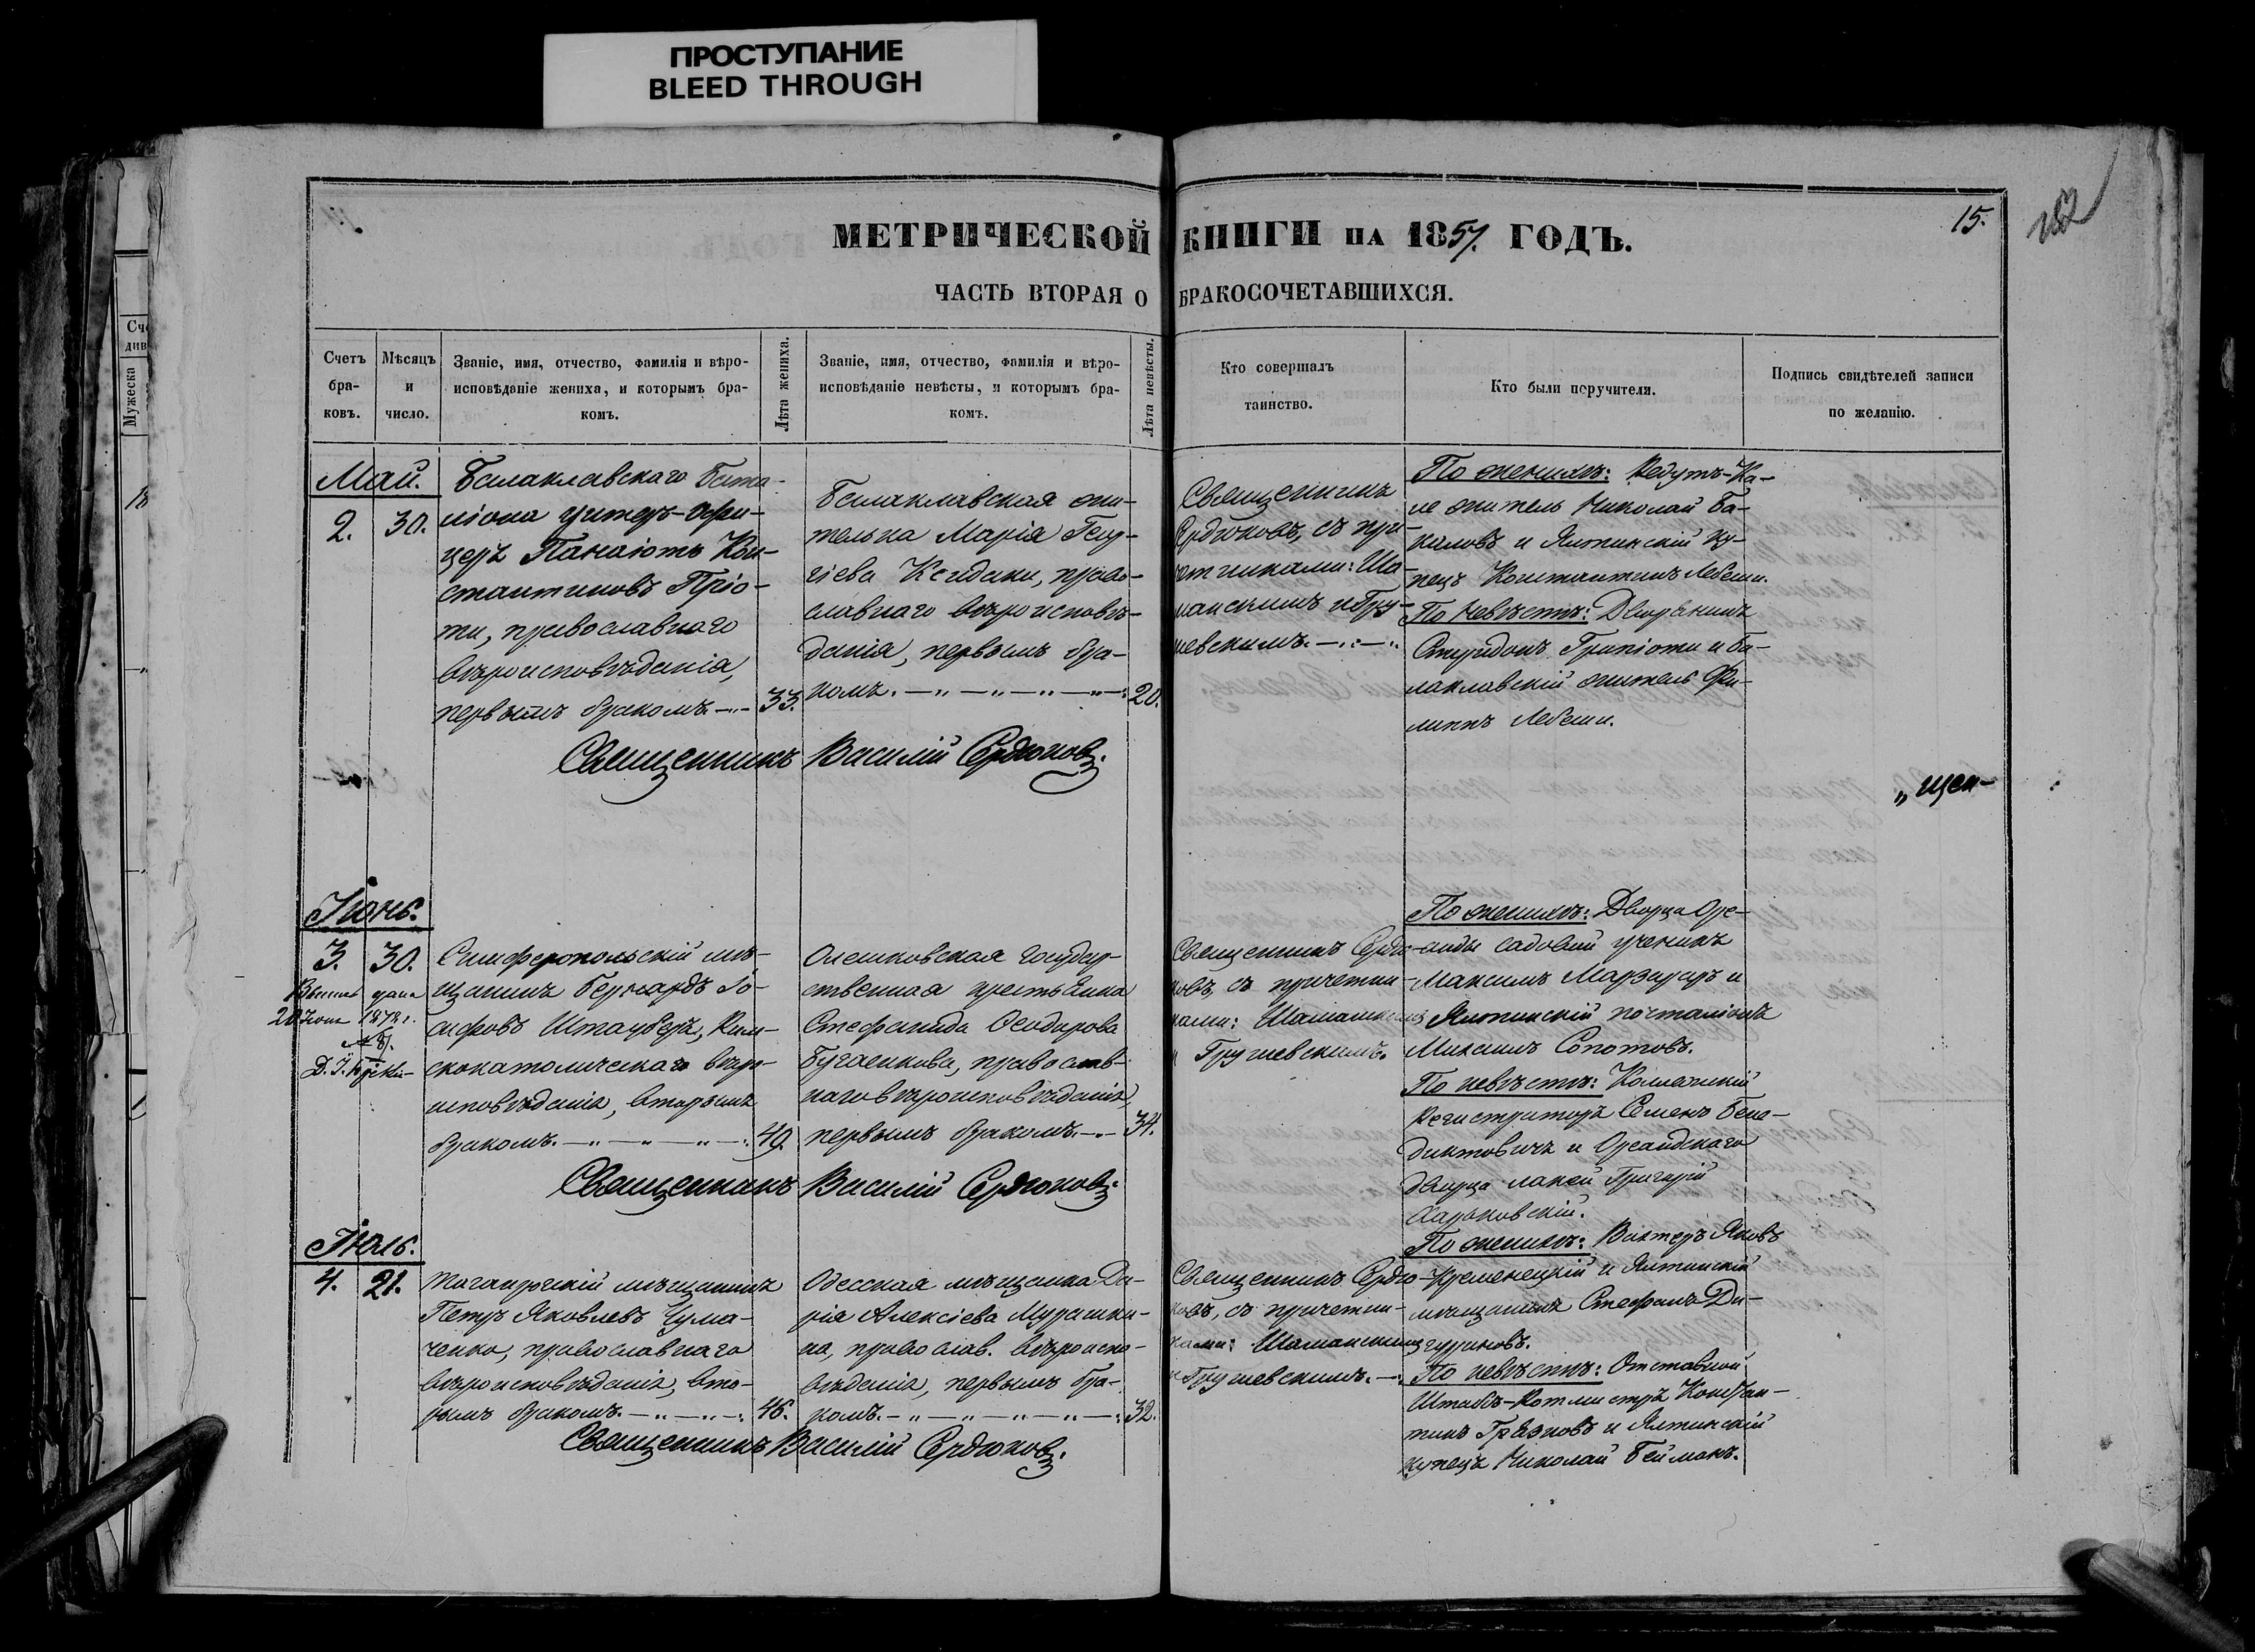 ПРОСТУПАНИЕ
BLEED THROUGH
15.
МЕТРИЧЕСКОЙ КНИГИ НА 1857. ГОДЪ.
ЧАСТЬ ВТОРАЯ О БРАКОСОЧЕТАВШИХСЯ.
Счетъ
бра-
ковъ.
Мѣсяцъ
и
число.
Званіе, имя, отчество, фамилія и вѣро-
исповѣданіе жениха, и которымъ бра-
комъ.
Лѣта жениха.
Званіе, имя, отчество, фамилія и вѣро-
исповѣданіе невѣсты, и которымъ бра-
комъ.
Лѣта невѣсты.
Кто совершалъ
таинство.
Кто были поручители.
Подпись свидѣтелей записи
по желанію.
Май.
2. 30.
Балаклавскаго Бата-
ліона унтеръ-офи-
церъ Панаіотъ Кон-
стантиновъ Пріо-
ти, православнаго
вѣроисповѣданія,
первымъ бракомъ. 33.
Балаклавская жи-
телька Марія Геор-
гіева право-
славнаго вѣроисповѣ-
данія, первымъ бра-
комъ. 20.
Священникъ
Сердюковъ, съ при-
четниками: Ша-
манскимъ и Гру-
шевскимъ.
По женихѣ: Редутъ-Ка-
ле житель Николай Ба-
каловъ и Ялтинскій ку-
пецъ Константинъ Лебеши.
По невѣстѣ: Дворянинъ
Спиридонъ Грипіоти и ба-
лаклавскій житель Фи-
липпъ Лебеши.
Священникъ Василій Сердюковъ.
„щен-
Іюнь.
3. 30.
20 Іюня 1878 г.
Симферопольскій мѣ-
щанинъ Бернардъ Іо-
сифовъ Штауберъ, Рим-
скокатолическаго вѣро-
исповѣданія, вторымъ
бракомъ. 49.
Олешковская государ-
ственная крестьянка
Стефанида Ѳеодорова
Бугаенкова, православ-
наго вѣроисповѣданія,
первымъ бракомъ. 34.
Священникъ Сердю-
ковъ, съ причетни-
ками: Шаманскимъ
и Грушевскимъ.
По женихѣ: Дворца Оре-
анды садовый ученикъ
Максимъ и
Ялтинскій почталіонъ
Михаилъ Сопотовъ.
По невѣстѣ: Коллежскій
Регистраторъ Семенъ Бене-
диктовичъ и Ореандскаго
дворца лакей Григорій
Харьковскій.
Священникъ Василій Сердюковъ.
Іюль.
4. 21.
Таганрогскій мѣщанинъ
Петръ Яковлевъ Чума-
ченко, православнаго
вѣроисповѣданія, вто-
рымъ бракомъ. 46.
Одесская мѣщанка Да-
рія Алексіева Мурашки-
на, православ. вѣроиспо-
вѣданія, первымъ бра-
комъ. 32.
Священникъ Сердю-
ковъ, съ причетни-
ками: Шаманскимъ
и Грушевскимъ.
По женихѣ: Вахтеръ Яковъ
Кременецкій и Ялтинскій
мѣщанинъ Стефанъ Ди-
гуриновъ.
По невѣстѣ: Отставной
Штабъ-Ротмистръ Констан-
тинъ Грязновъ и Ялтинскій
купецъ Николай Бейманъ.
Священникъ Василій Сердюковъ.